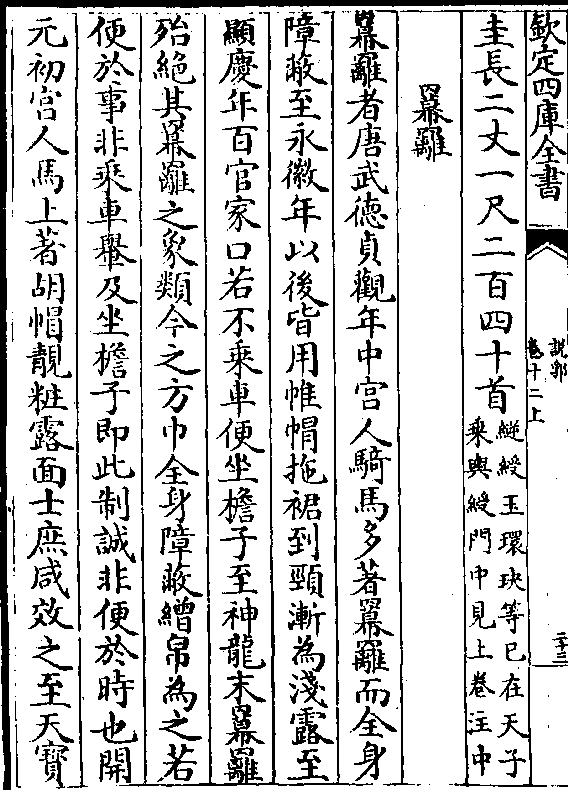 欽定四庫全書
說郛
卷十二上
二十三
圭長二丈一尺二百四十首
縱綬玉環玦等已在天子
乘輿綬門中見上卷注中
羃䍦
羃䍦者唐武德貞觀年中宫人騎馬多著羃䍦而全身
障蔽至永徽年以後皆用帷帽拖裙到頸漸為淺露至
顯慶年百官家口若不乘車便坐檐子至神龍末羃䍦
殆絶其羃䍦之象類今之方巾全身障蔽繒帛為之若
便於事非乘車轝及坐檐子即此制誠非便於時也開
元初宫人馬上著胡帽靚粧露面士庶咸效之至天寶